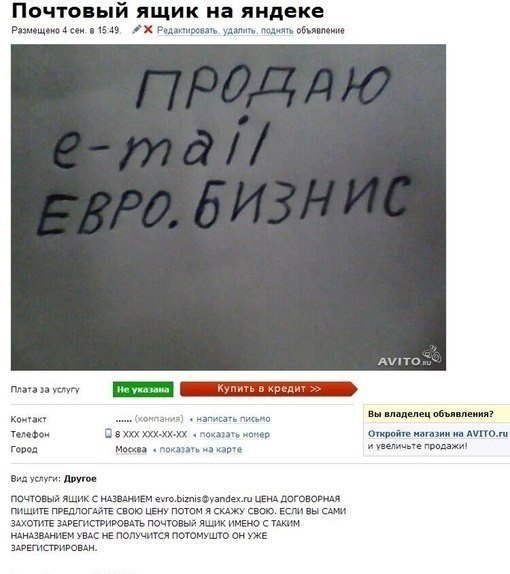 Почтовый ящик на яндеке
Размещено 4 сен. в 15:49. Редактировать, удалить, поднять объявление
ПРОДАЮ
e-mail
ЕВРО.БИЗНИС
AVITO.ru
Плата за услугу Не указана Купить в кредит >>
Контакт ...... (компания) написать письмо
Телефон 8 XXX XXX-XX-XX показать номер
Город Москва показать на карте
Вы владелец объявления?
Откройте магазин на AVITO.ru
и увеличьте продажи!
Вид услуги: Другое
ПОЧТОВЫЙ ЯЩИК С НАЗВАНИЕМ evro.biznis@yandex.ru ЦЕНА ДОГОВОРНАЯ
ПИШИТЕ ПРЕДЛОГАЙТЕ СВОЮ ЦЕНУ ПОТОМ Я СКАЖУ СВОЮ. ЕСЛИ ВЫ САМИ
ЗАХОТИТЕ ЗАРЕГИСТРИРОВАТЬ ПОЧТОВЫЙ ЯЩИК ИМЕНО С ТАКИМ
НАНАЗВАНИЕМ УВАС НЕ ПОЛУЧИТСЯ ПОТОМУШТО ОН УЖЕ
ЗАРЕГИСТРИРОВАН.